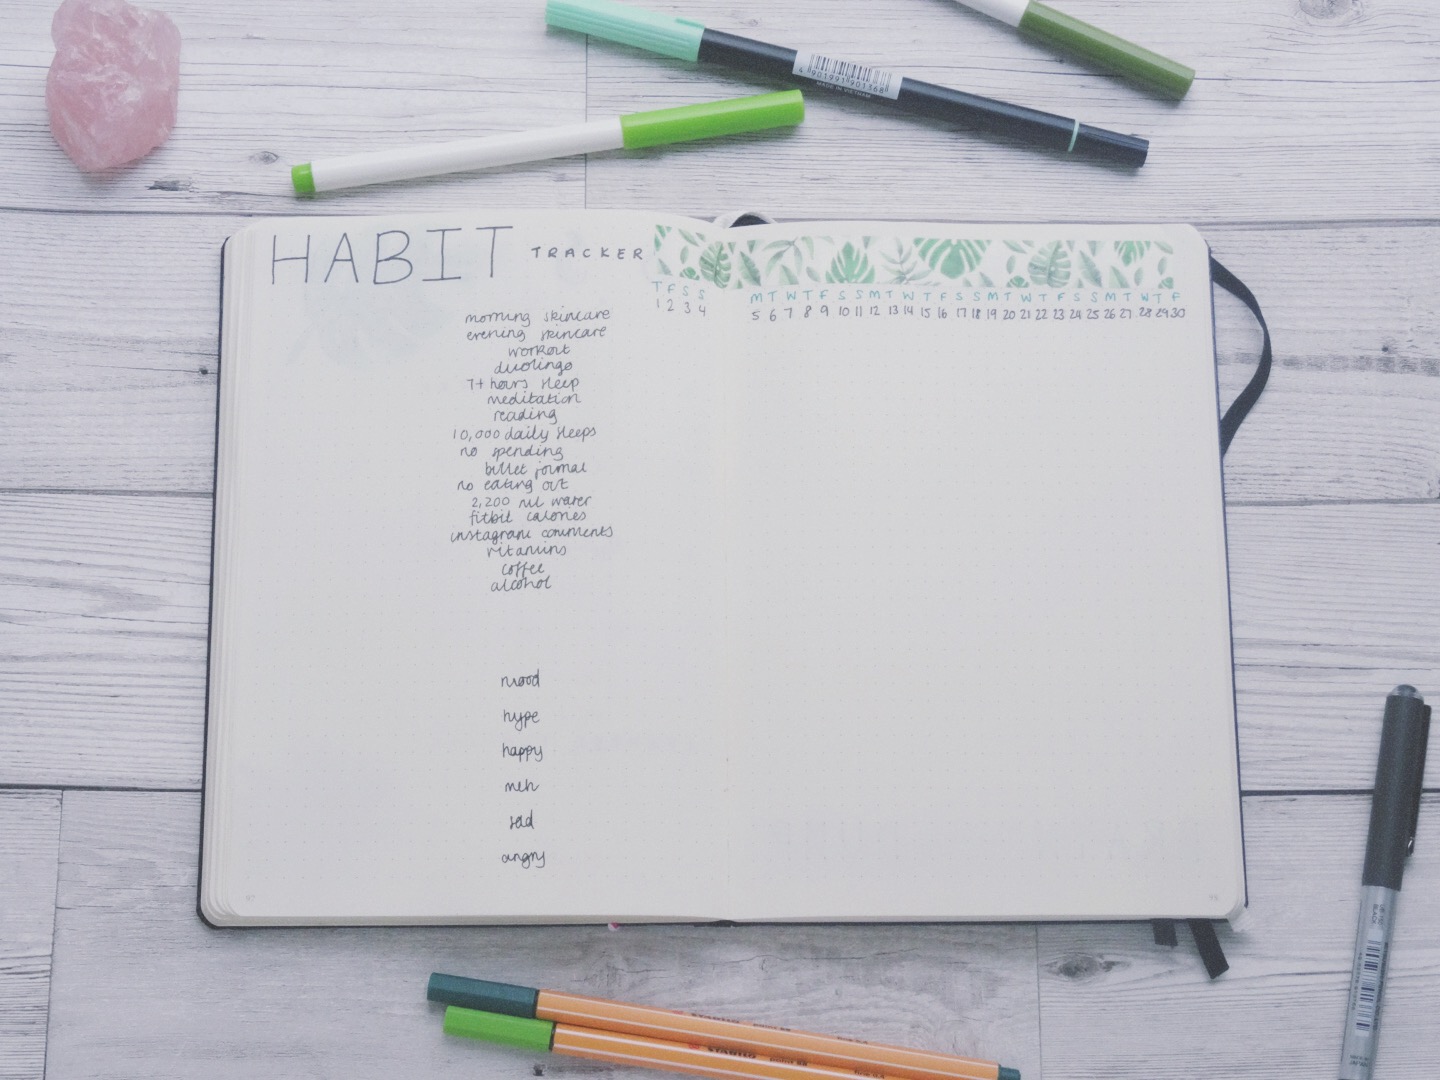 4901991901368
MADE IN VIETNAM
HABIT TRACKER
T F S S M T W T F S S M T W T F S S M T W T F S S M T W T F
1 2 3 4 5 6 7 8 9 10 11 12 13 14 15 16 17 18 19 20 21 22 23 24 25 26 27 28 29 30
morning skincare
evening skincare
workout
duolingo
7+ hours sleep
meditation
reading
10,000 daily steeps
no spending
bullet jormal
no eating out
2,200 ml water
fitbit calories
instagram comments
vitamins
coffee
alcohol
mood
hype
happy
meh
sad
angry
97
STABILO point 88
STABILO point 88
BLACK